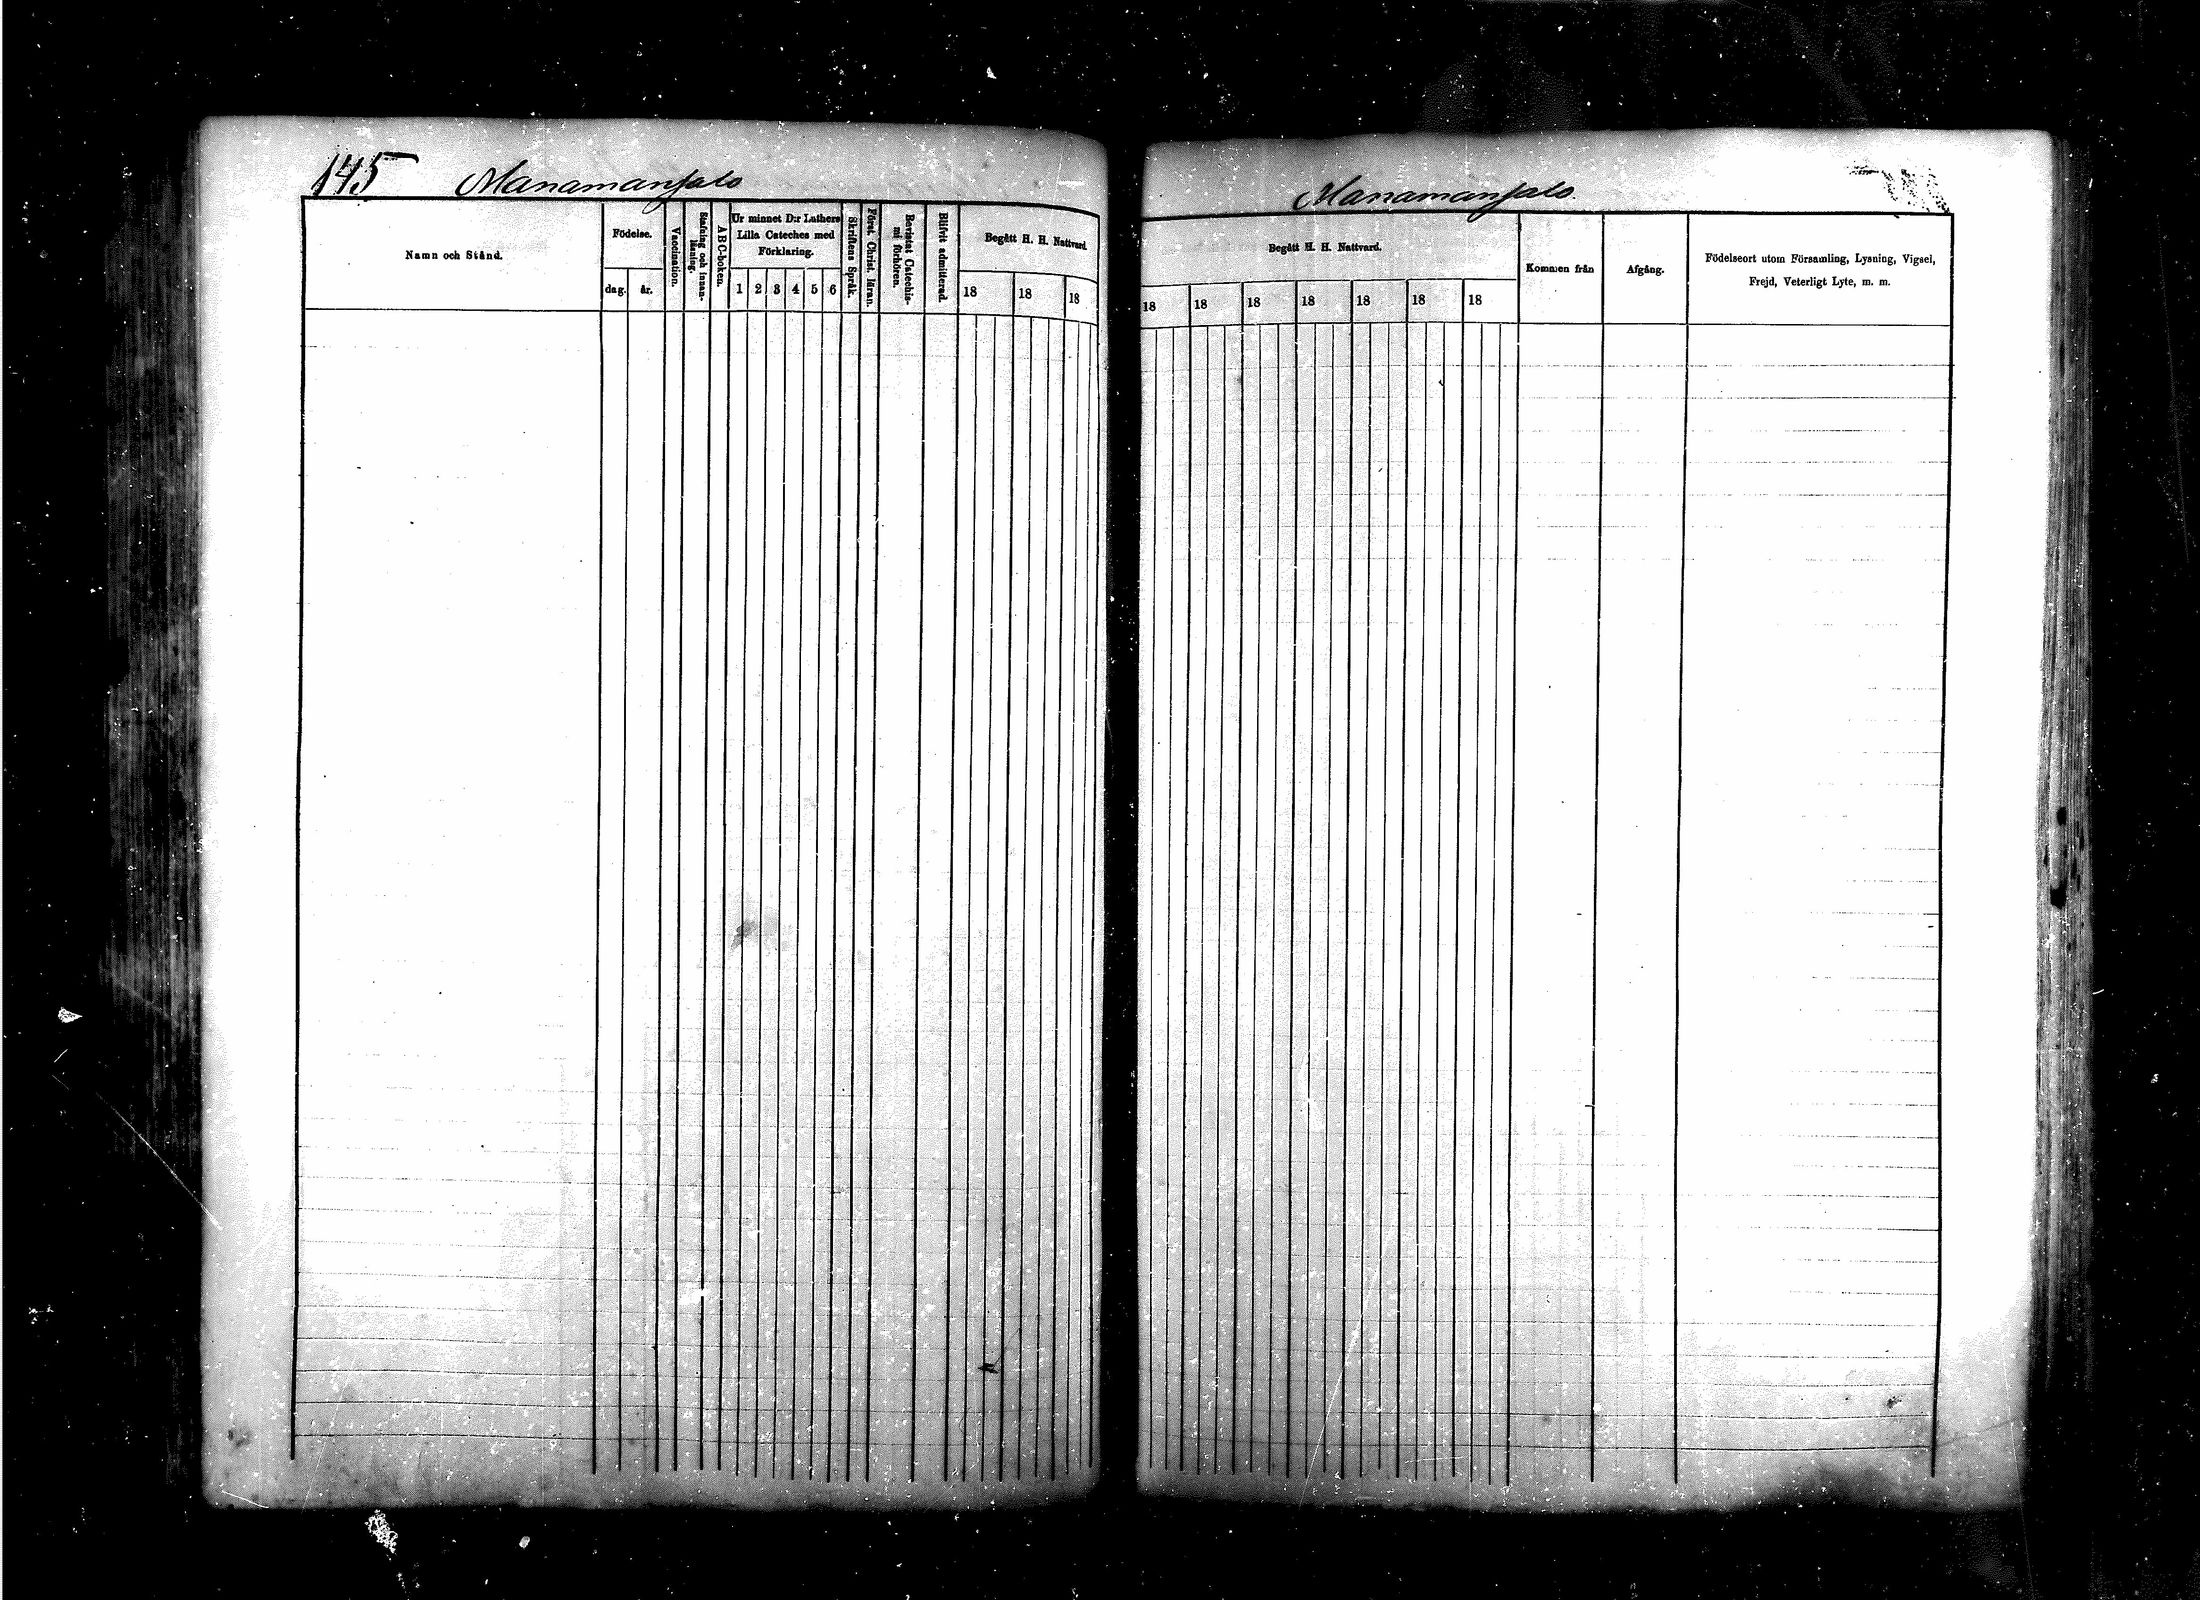 145 Manamansalo
Namn och Stånd.
Födelse.
dag.
år.
Vaccination.
Stafning och innan-
läsning.
ABC-boken.
Ur minnet D:r Luthers
Lilla Cateches med
Förklaring.
1 2 3 4 5 6
Skriftens Språk.
Först. Christ. läran.
Bevistat Catechis-
mi förhören.
Blifvit admitterad.
Begått H. H. Nattvard.
18 18 18
Manamansalo.
Begått H. H. Nattvard.
18 18 18 18 18 18 18
Kommen från
Afgång.
Födelseort utom Församling, Lysning, Vigsel,
Frejd, Veterligt Lyte, m. m.